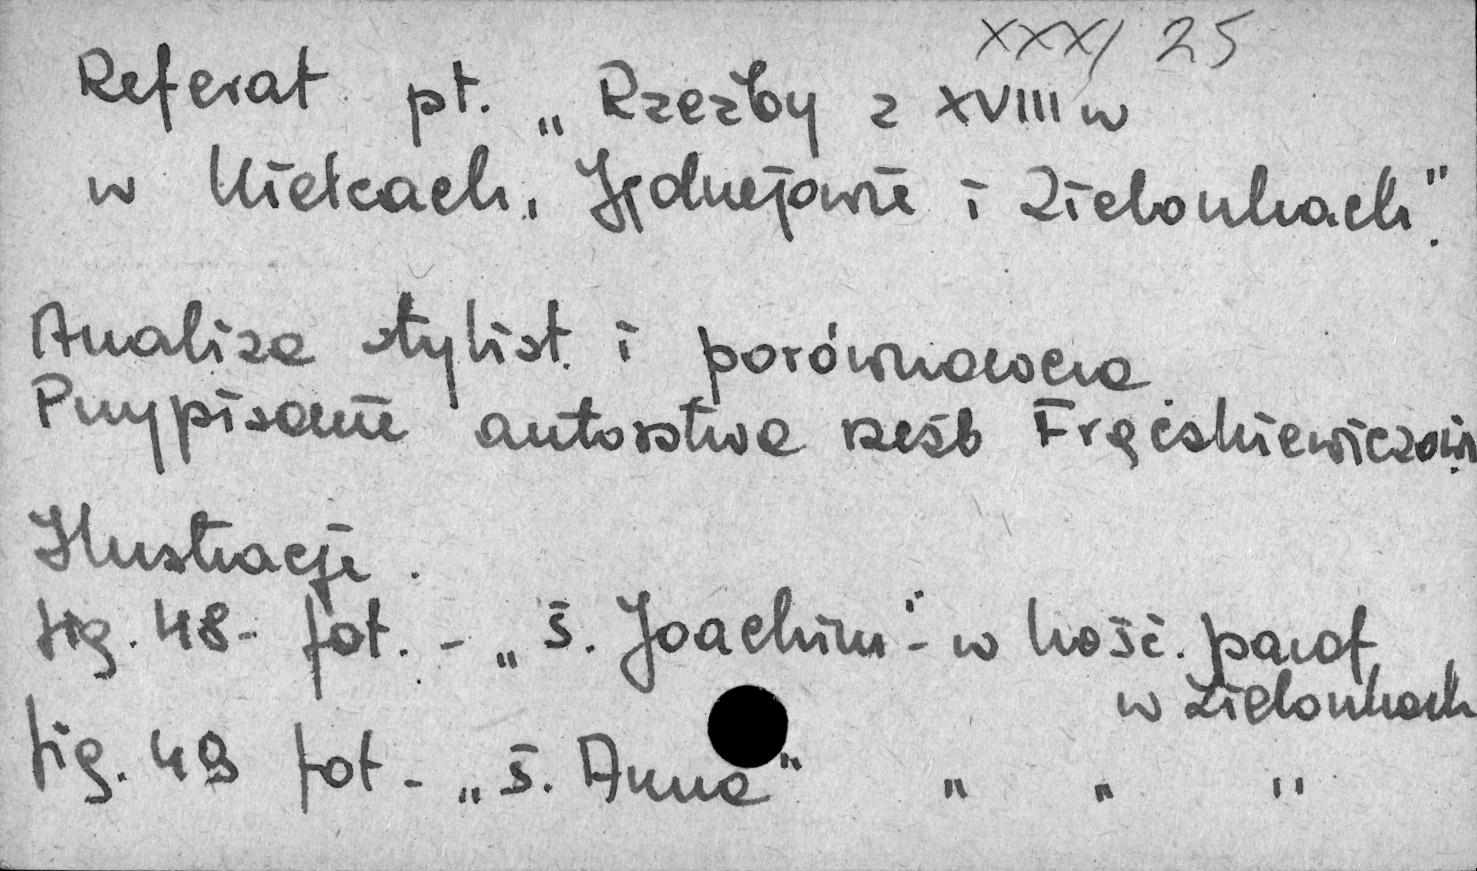 XXX/ 25
Referat pt. „Rzeźby z XVIII w
w Kielcach, Jędrzejowie i Zielonkach".
Analiza stylist. i porównawcza
Przypisanie autorstwa rzeźb Frączkiewiczowi.
Ilustracje.
fig. 48 - fot. - „Ś. Joachim" - w kość. paraf.
w Zielonkach
fig. 49 fot - „Ś. Anna" " " "